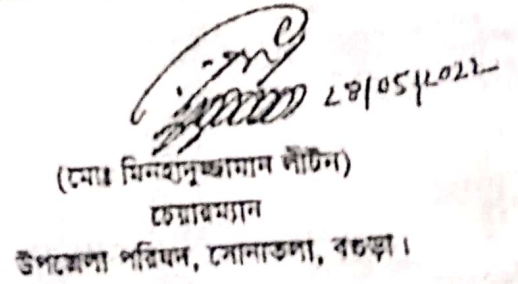 28/05/2022
(মোঃ মিনহাদুজ্জামান লীটন)
চেয়ারম্যান
উপজেলা পরিষদ, সোনাতলা, বগুড়া।